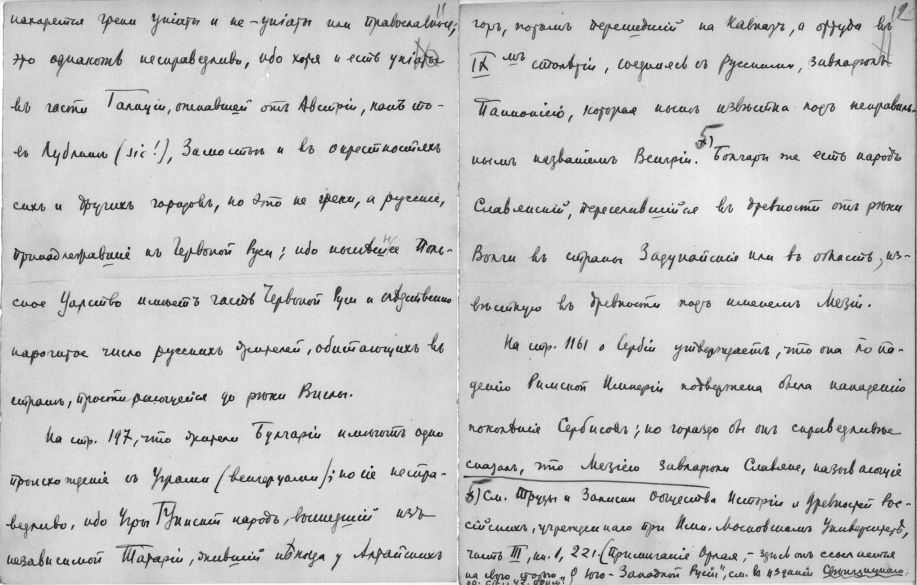 находятся греки унiаты и не-унiаты или православные;
это однакожъ несправедливо, ибо хотя и есть унiаты
въ части Галицiи, отпавшей отъ Австрiи, какъ то-
въ Люблинѣ (sic!), Замостьѣ и въ окрестностяхъ
сихъ и другихъ городовъ, но это не греки, а русскiе,
принадлежавшiе къ Червоной Руси; ибо нынѣшнее Поль-
ское Царство имѣетъ часть Червоной Руси и слѣдственно
нарочитое число русскихъ жителей, обитающихъ въ
странѣ, простирающейся до рѣки Вислы.
На стр. 197, что жители Булгарiи имѣютъ одно
происхожденiе съ Уграми (венгерцами); но сiе неспра-
ведливо, ибо Угры Гунскiй народъ, вышедшiй изъ
независимой Татарiи, жившiй нѣкогда у Алтайскихъ
12
горъ, потомъ перешедшiй на Кавказъ, а оттуда въ
IX мъ столѣтiи, соединясь съ Руссками, завладѣлъ
Паннонiею, которая нынѣ извѣстна подъ неправиль-
нымъ названiемъ Венгрiи. 5) Болгары же есть народъ
Славянскiй, переселившiйся въ древности отъ рѣки
Волги въ страны Задунайскiя или въ область, из-
вѣстную въ древности подъ именемъ Мезiи.
На стр. 1161 о Сербiи утверждаетъ, что она по па-
денiю Римской Имперiи подвержена была нападенiю
поколѣнiя Сербисовъ; но гораздо бы онъ справедливѣе
сказалъ, что Мезiею завладѣли Славяне, называющiе
5) См. Труды и Записки Общества Исторiи и Древностей Рос-
сiйскихъ, учрежденнаго при Имп. Московскомъ Университетѣ,
часть III, кн. 1, 221. (Примѣчанiе Орлая, - здѣсь онъ ссылается
на свою статью „О Юго-Западной Русiи", см. въ изданiи Свенцицкаго,